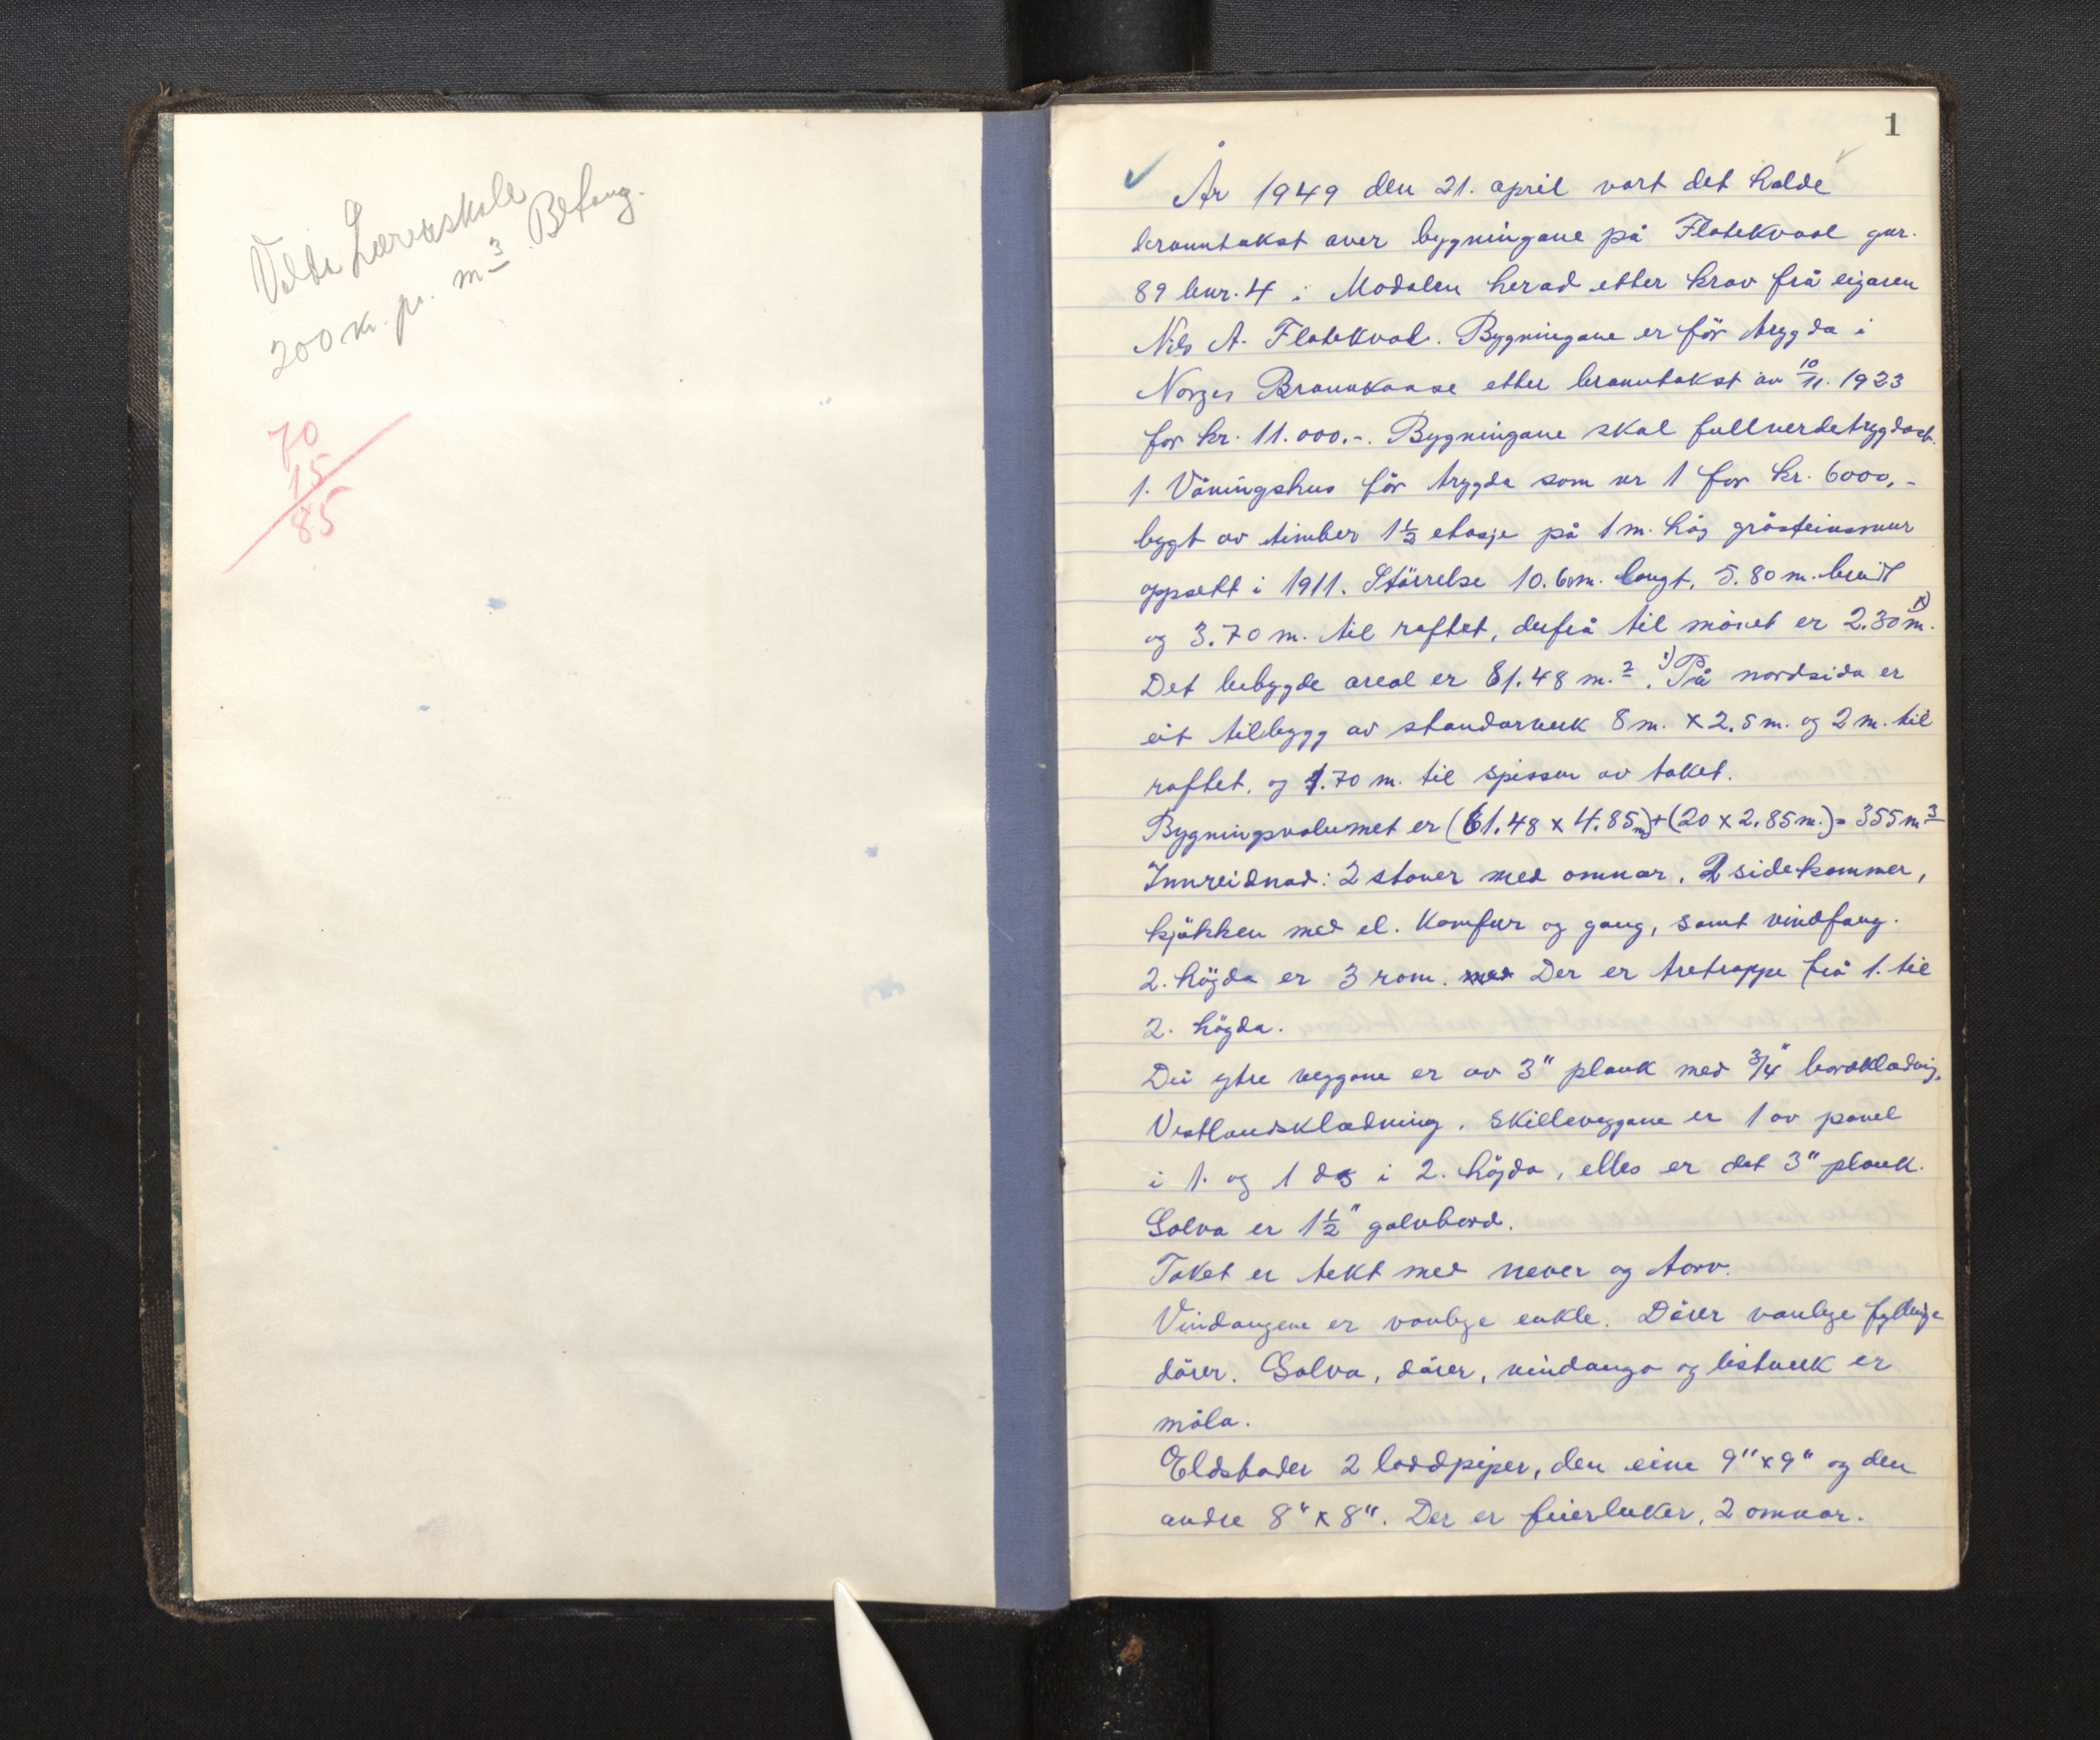 Lærarskole
200 kr. pr. m3. Betong.
70
15
85
1
År 1949 den 21. april vart det halde
branntakst over bygningane på Flatekvaal gnr.
89 bnr. 4 i Modalen herad etter krav frå eigaren
Nils A. Flatekval. Bygningane er för trygda i
Norges Brannkasse etter branntakst av 10/11. 1923
for kr. 11.000.-. Bygningane skal fullverdetrygdast.
1. Våningshus för trygda som nr 1 for kr. 6000,-
bygt av timber 1½ etasje på 1 m. høg gråsteinsmur
oppsett i 1911. Störrelse 10.60m. langt, 5.80 m. breidt
og 3.70 m. til raftet, derfrå til mönet er 2.30 m. x)
Det bebygde areal er 61.48 m.2. x) På nordsida er
eit tilbygg av standarverk 8 m. x 2.5 m. og 2 m. til
raftet, og 1.70 m. til spissen av taket.
Bygningsvolumet er (61.48 x 4.85 m)+(20 x 2.85 m.)= 355 m3
Innreidnad: 2 stover med omnar, 2 sidekammer,
kjökken med el. Komfur og gang, samt vindfang.
2. högda er 3 rom. med Der er tretrappe frå 1. til
2. högda.
Dei ytre veggane er av 3" plank med 3/4" bordklædnig,
Vestlandsklædning. Skilleveggane er 1 av panel
i 1. og 1 do i 2. högda, elles er det 3" plank.
Golva er 1½" golvbord.
Taket er tekt med never og torv.
Vindaugene er vanlege enkle. Dörer vanlege fyllings
dörer. Golva, dörer, vindauga og listverk er
måla.
Eldstader 2 loddpiper, den eine 9" x 9" og den
andre 8" x 8". Der er feierluker, 2 omnar.